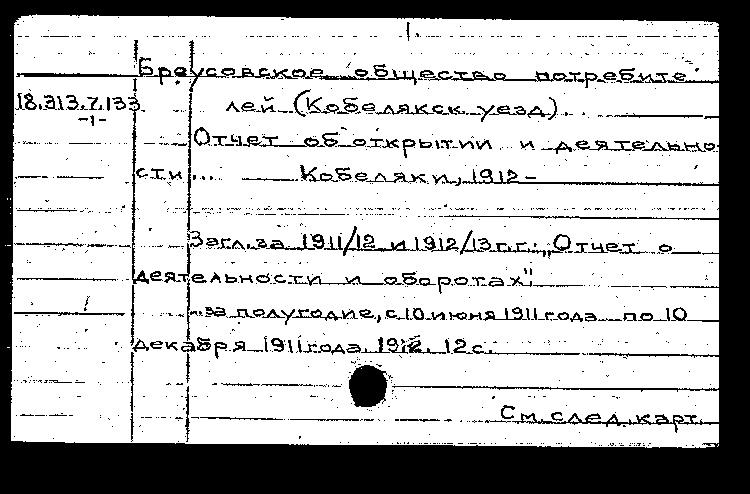 1.
Бреусовское общество потребите-
18.313.7.133 лей (Кобелякск уезд).
-1-
Отчет об открытии и деятельно
сти... Кобеляки, 1912-
Загл. за 1911/12 и 1912/13 г.г.: „Отчет о
деятельности и оборотах"
...за полугодие, с 10 июня 1911 года по 10
декабря 1911 года. 1912. 12 с.
См. след. карт.